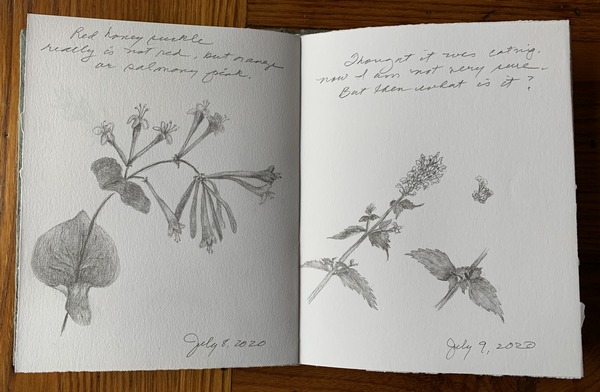 Red honey suckle
really is not red, but orange
or salmony pink.
July 8, 2020
Thought it was catnip.
now I am not very sure.
But then what is it?
July 9, 2020